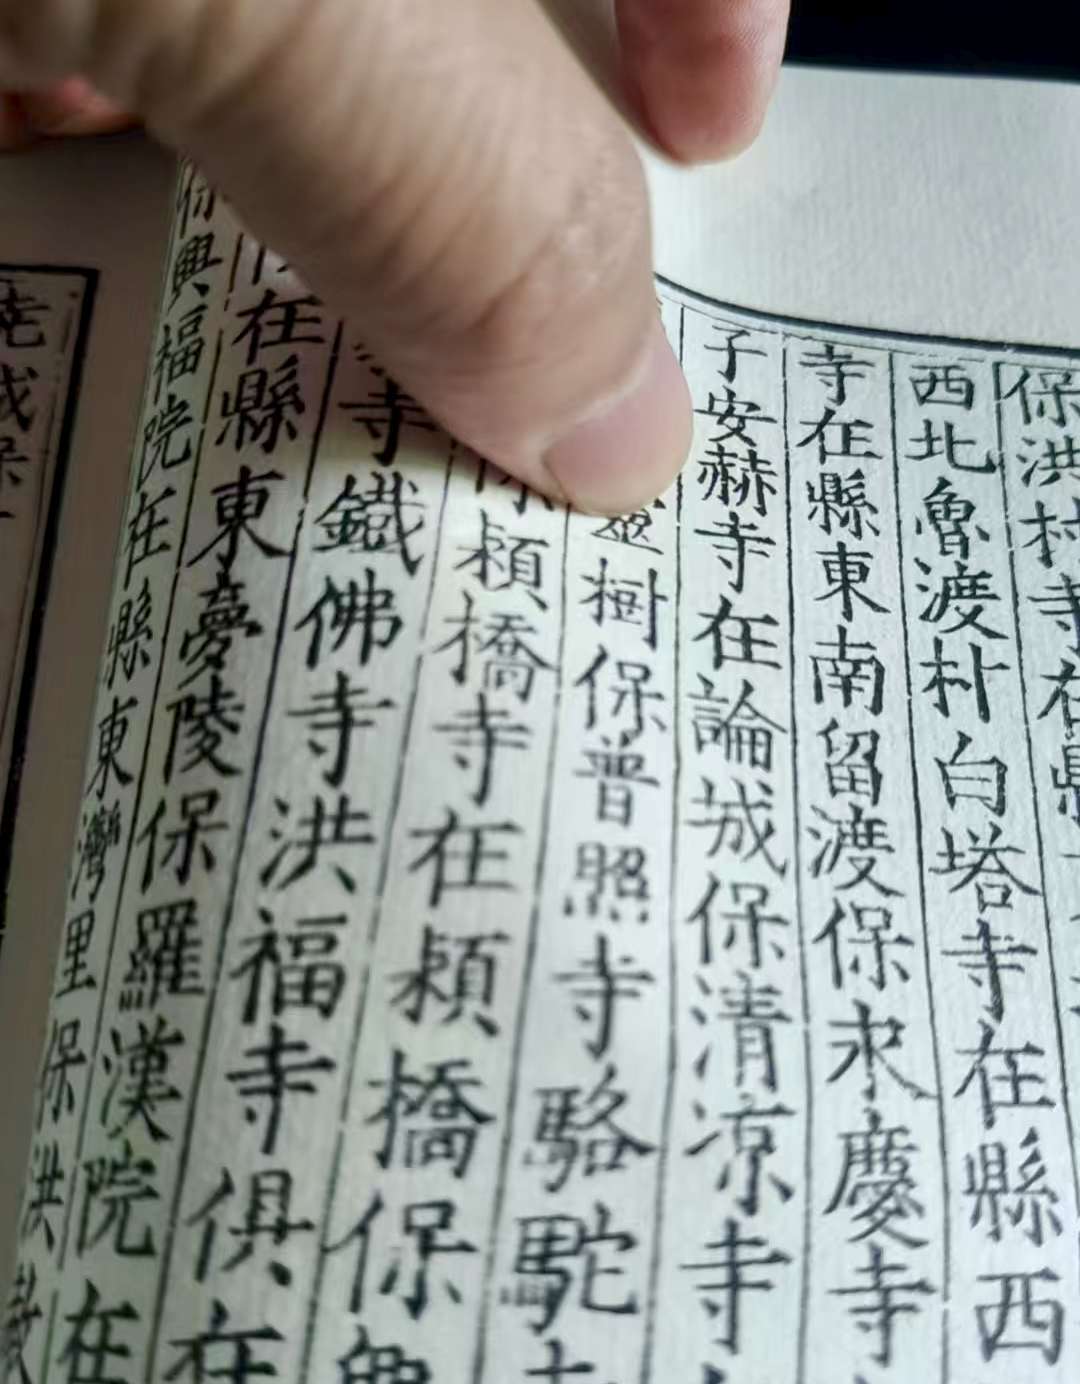 保洪村寺在縣
西北魯渡朴白塔寺在縣西
寺在縣東南留渡保永慶寺
子安赫寺在論城保清涼寺
靈樹保普照寺駱駝
保潁橋寺在潁橋保興
寺鐵佛寺洪福寺俱在
在縣東夢陵保羅漢院在
興福院在縣東灣里保洪